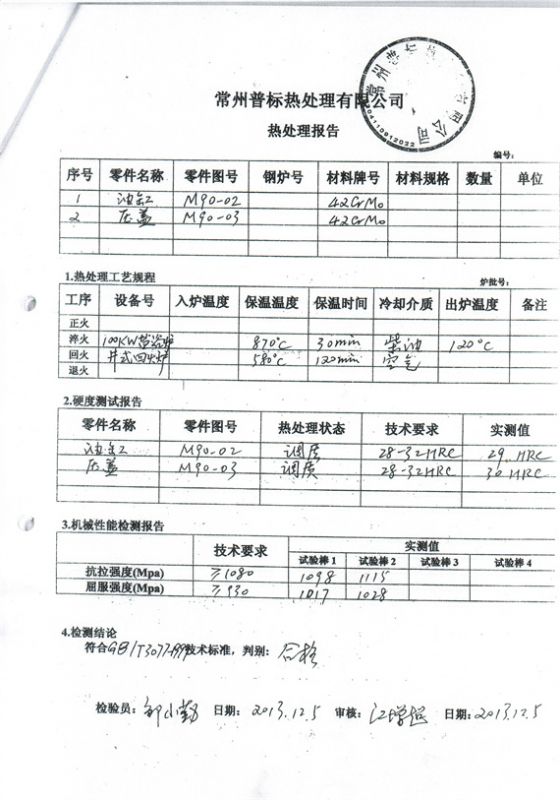 常州普标热处理有限公司
热处理报告
编号:
序号 零件名称 零件图号 钢炉号 材料牌号 材料规格 数量 单位
1 油缸 M90-02 42CrMo
2 压盖 M90-03 42CrMo
1.热处理工艺规程 炉批号:
工序 设备号 入炉温度 保温温度 保温时间 冷却介质 出炉温度 备注
正火
淬火 100KW盐浴炉 870°C 30min 柴油 120°C
回火 井式回火炉 580°C 120min 空气
退火
2.硬度测试报告
零件名称 零件图号 热处理状态 技术要求 实测值
油缸 M90-02 调质 28-32HRC 29 HRC
压盖 M90-03 调质 28-32HRC 30 HRC
3.机械性能检测报告
技术要求 实测值
试验棒1 试验棒2 试验棒3 试验棒4
抗拉强度(Mpa) ≥1080 1098 1115
屈服强度(Mpa) ≥930 1017 1028
4.检测结论
符合GB/T3077-1999技术标准，判别: 合格
检验员: 日期: 2013.12.5 审核: 日期: 2013.12.5